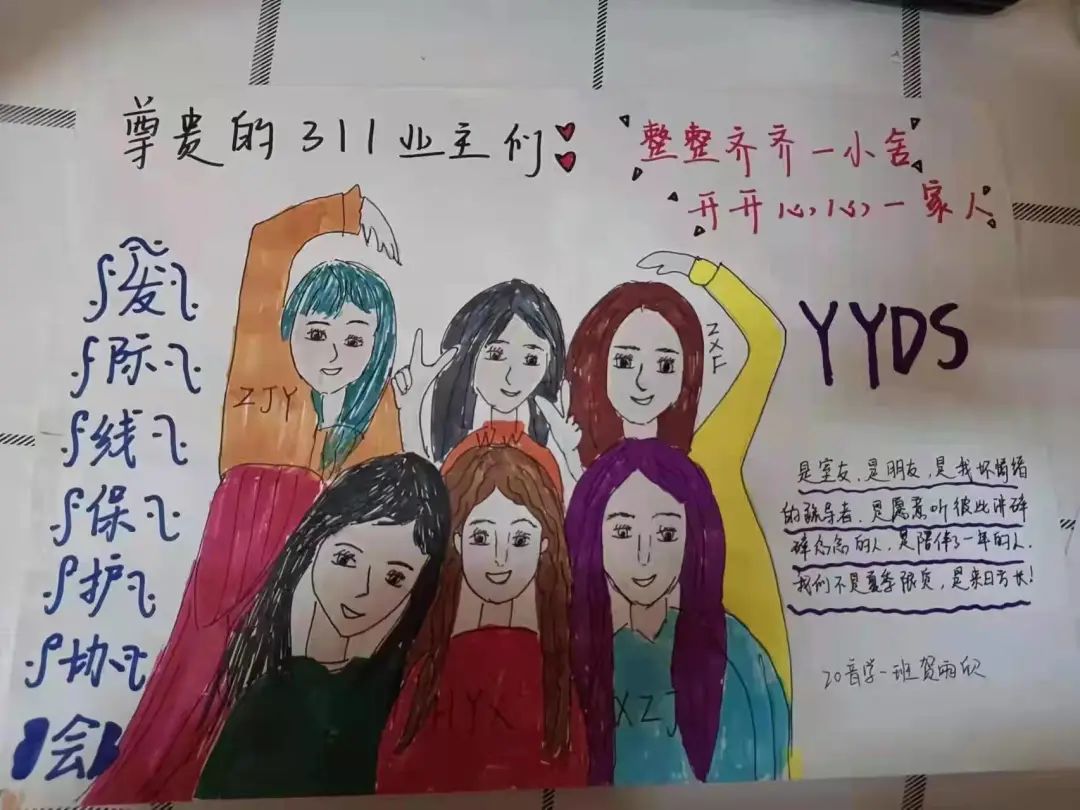 尊贵的311业主们
整整齐齐一小舍
开开心心一家人
发
际
线
保
护
协
会
ZJY
ZXF
WW
HYX
XZJ
YYDS
是室友，是朋友，是我坏情绪
的疏导者，是愿意听彼此讲碎
碎念念的人，是陪伴了一年的人，
我们不是夏季限员，是来日方长！
20音学一班贺雨欣